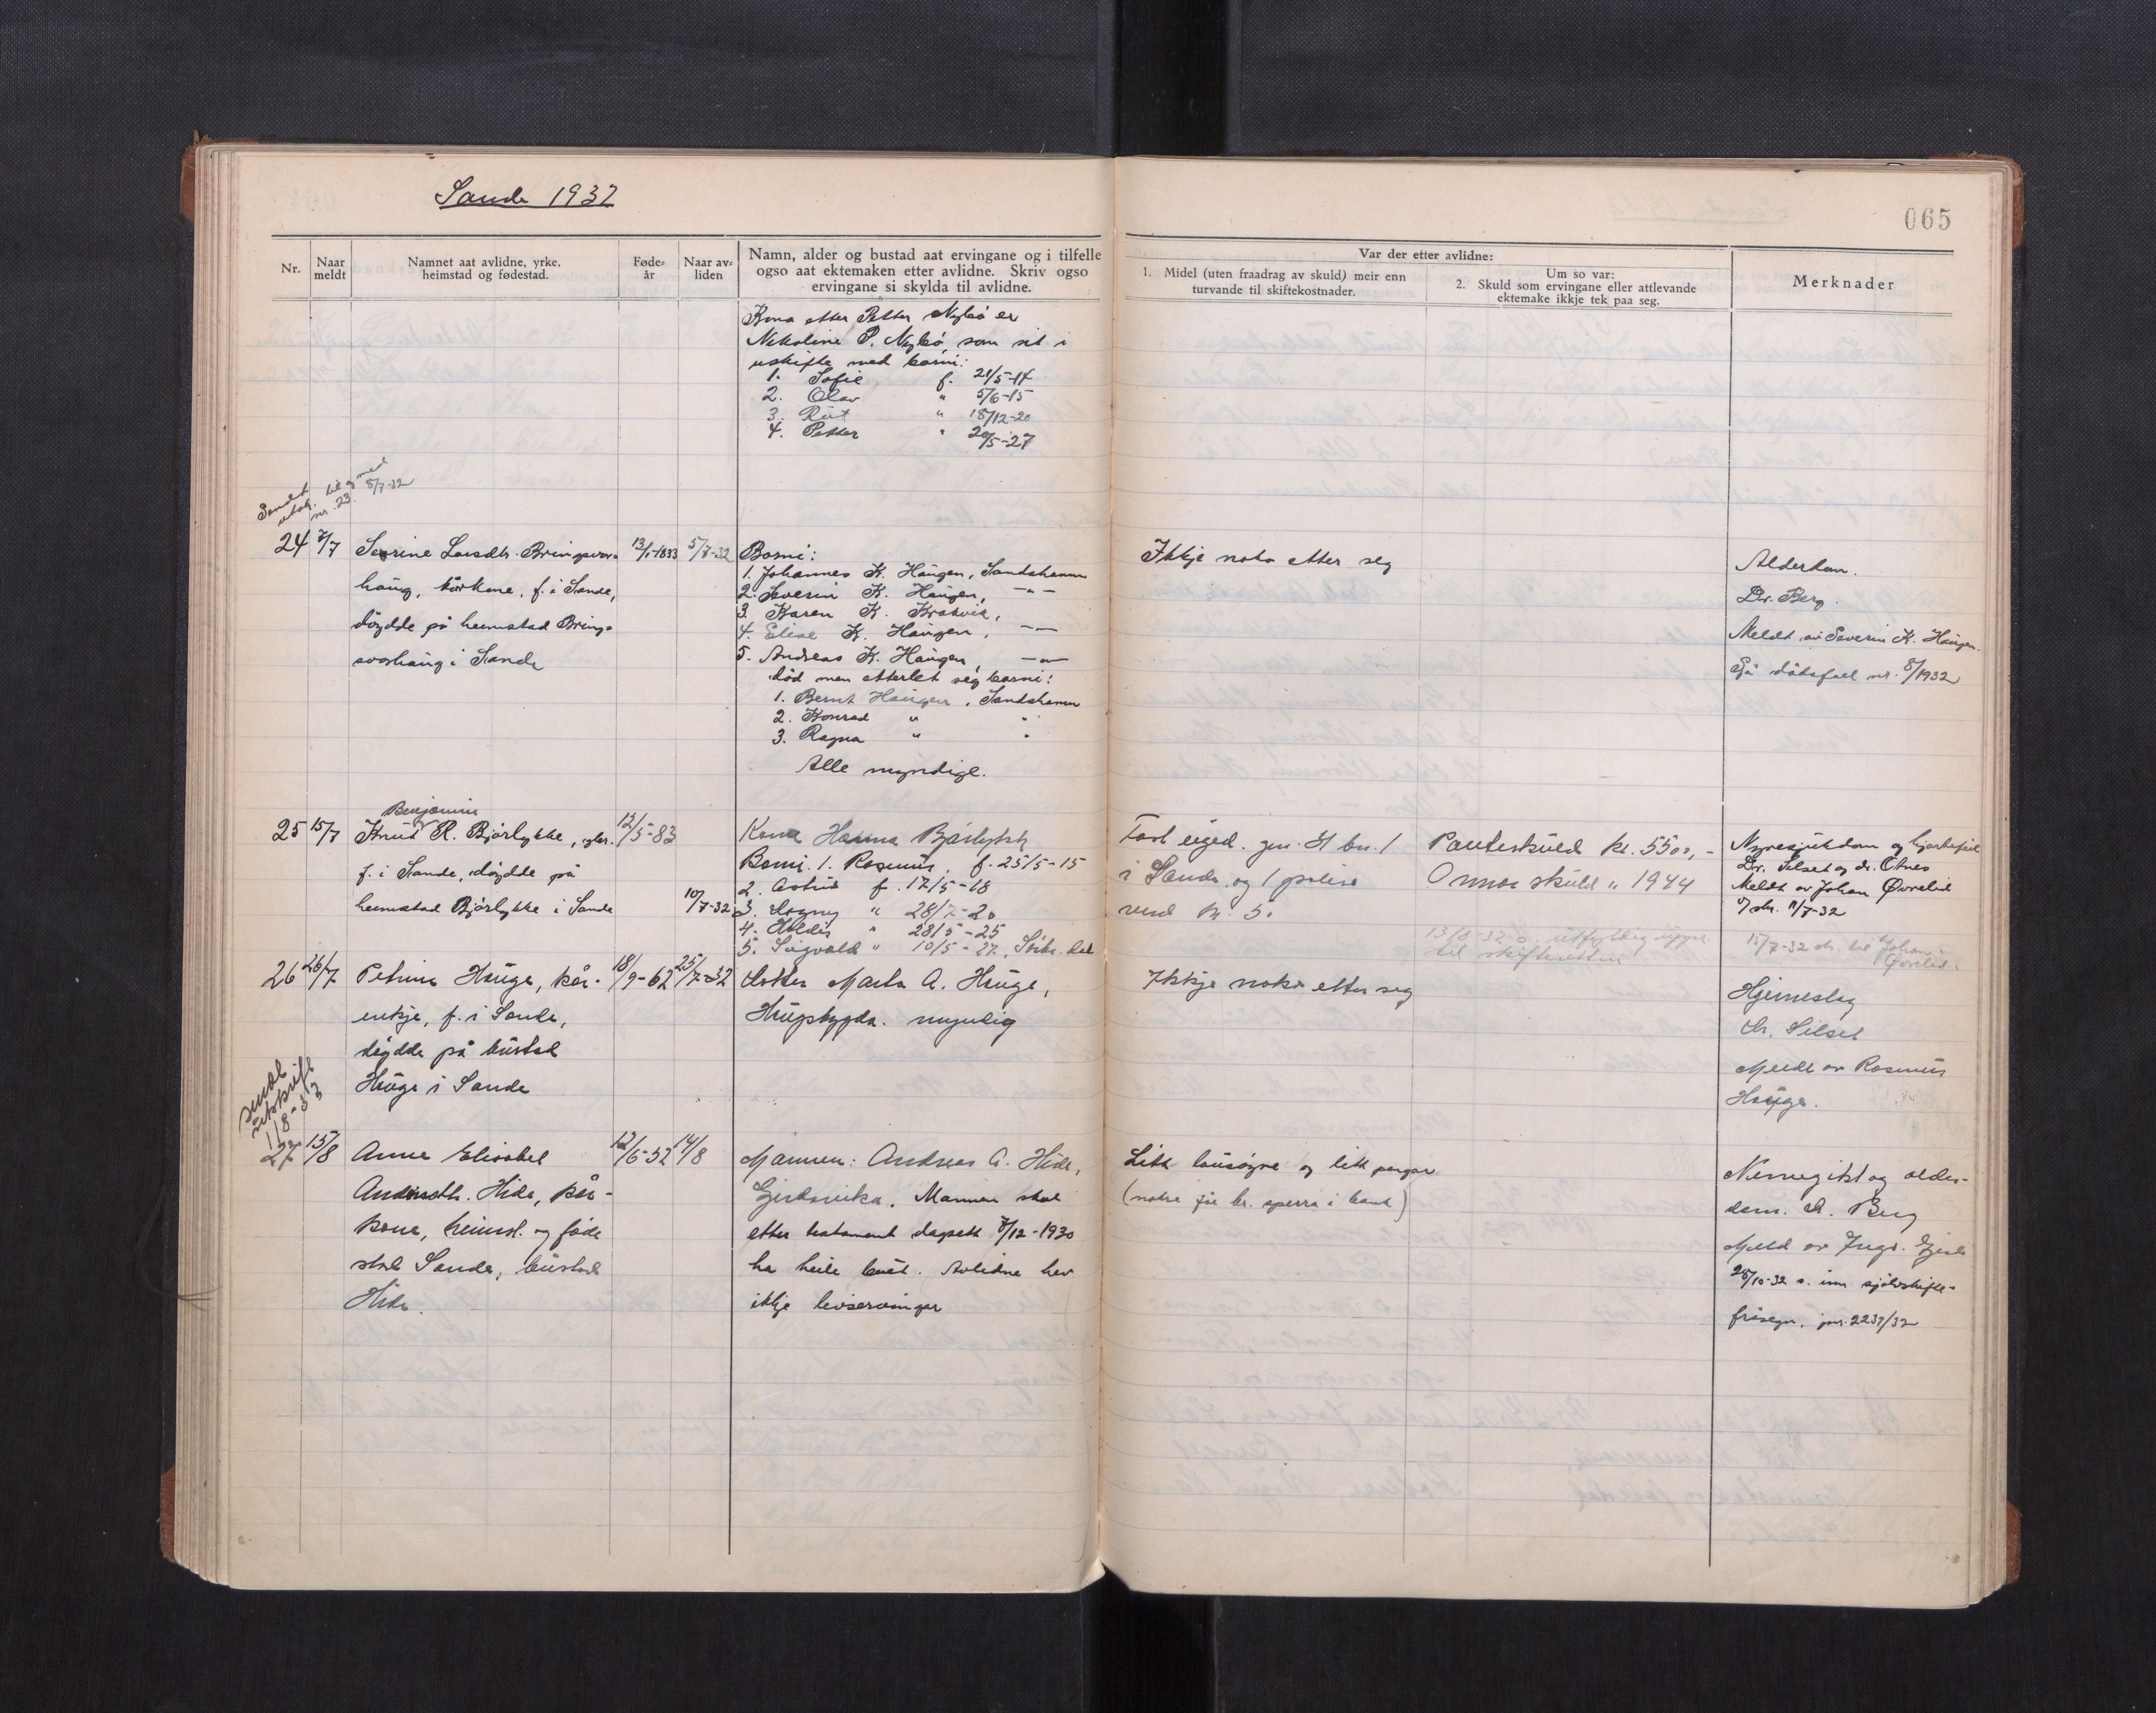 Sande 1932
065
Nr.
Naar meldt
Namnet aat avlidne, yrke, heimstad og fødestad.
Føde-år
Naar av-liden
Namn, alder og bustad aat ervingane og i tilfelle
ogso aat ektemaken etter avlidne. Skriv ogso
ervingane si skylda til avlidne.
Var der etter avlidne:
1. Midel (uten fraadrag av skuld) meir enn
turvande til skiftekostnader.
Um so var:
2. Skuld som ervingane eller attlevande
ektemake ikkje tek paa seg.
Merknader
Kona etter Petter Nybø er
Nikoline P. Nybø som sit i
uskifte med borni:
1. Sofie f. 21/5-14
2. Olav " 5/6-15
3. Rut " 18/12-20
4. Petter " 20/5-27
Sendt utskr. til og med
nr. 23. 8/7-32
24 7/7 Serine Larsdtr. Bringsvor- 13/1-1833 5/7-32
haug, kårkone, f. i Sande,
döydde på heimstad Brings-
vorhaug i Sande
Borni:
1. Johannes K. Haugen, Sandshamn
2. Severin K. Haugen, -"-
3. Karen K. Krakvik,
4. Elise K. Haugen, -"-
5. Andreas K. Haugen, -"-
död men etterlet seg borni:
1. Bernt Haugen, Sandshamn
2. Konrad " "
3. Ragna " "
Alle myndige.
Ikkje noko etter seg
Alderdom.
Dr. Berg.
Meldt av Severin K. Haugen.
Sjå dödsfall nr. 8/1932
25 15/7 Knut Benjamin R. Bjørlykke, gbr. 12/5-83
f. i Sande, döydde på
heimstad Bjørlykke i Sande 10/7-32
Kona Hanna Bjørlykke
Borni. 1. Rasmus, f. 25/5-15
2. Astrid f. 17/5-18
3. Dagny " 28/7-20
4. Haldis " 28/5-25
5. Sigvald " 10/5-27.
Fast eiged. gnr. 4 bn. 1
i Sande og 1 polise
verd kr. 50
Panteskuld kr. 5500,-
Annor skuld " 1944
13/8-32 s. utfyldig uppg.
til skifteretten
Nyresjukdom og hjartefeil
Dr. Silset og dr. Otnes
Meldt av Johan Øvrelid
v/ skr. 11/7-32
15/7-32 skr. til Johan
Øvrelid.
26 26/7 Petrine Hauge, kår- 18/9-62 25/7-32
enkje, f. i Sande,
döydde på bustad
Hauge i Sande
Dotter Marta A. Hauge,
Haugsbygda. myndig
Ikkje noko etter seg
Hjerneslag
dr. Silset
Meldt av Rasmus
Hauge.
sendt
utskrift
1/8-33
27 15/8 Anne Elisabet 12/6-52 14/8
Andersdtr. Hide, kår-
kone, heimst. og føde
stad Sande, bustad
Hide.
Mannen: Andreas A. Hide,
Gjerdsvika. Mannen skal
etter testament dagsett 8/12-1930
ha heile buet. Avlidne hev
ikkje livservingar
Litt lausøyre og litt pengar
(nokre får kr. sperra i bank)
Nervegikt og alder-
dom. dr. Berg
Meldt av Ingv. Gjerde
28/10-32 s. inn sjølvskifte-
fråsegn, jnr. 2237/32